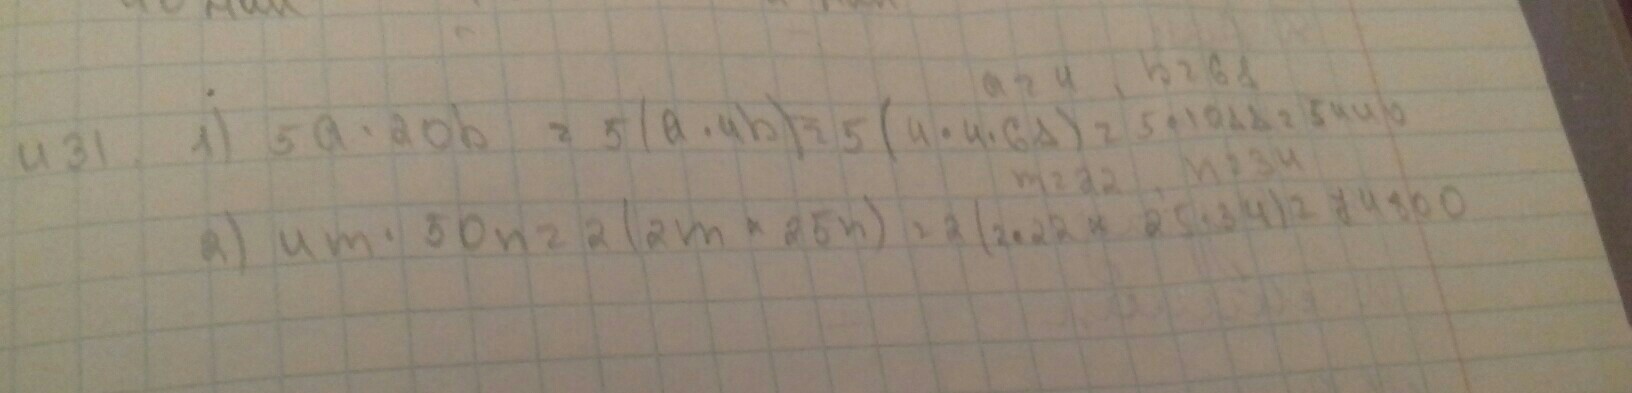 431. 1) 5a · 20b = 5(a · 4b) = 5(4 · 4 · 68) = 5 · 1088 = 5440
a = 4, b = 68
2) 4m · 50n = 2(2m × 25n) = 2(2 · 22 × 25 · 34) = 74800
m = 22, n = 34